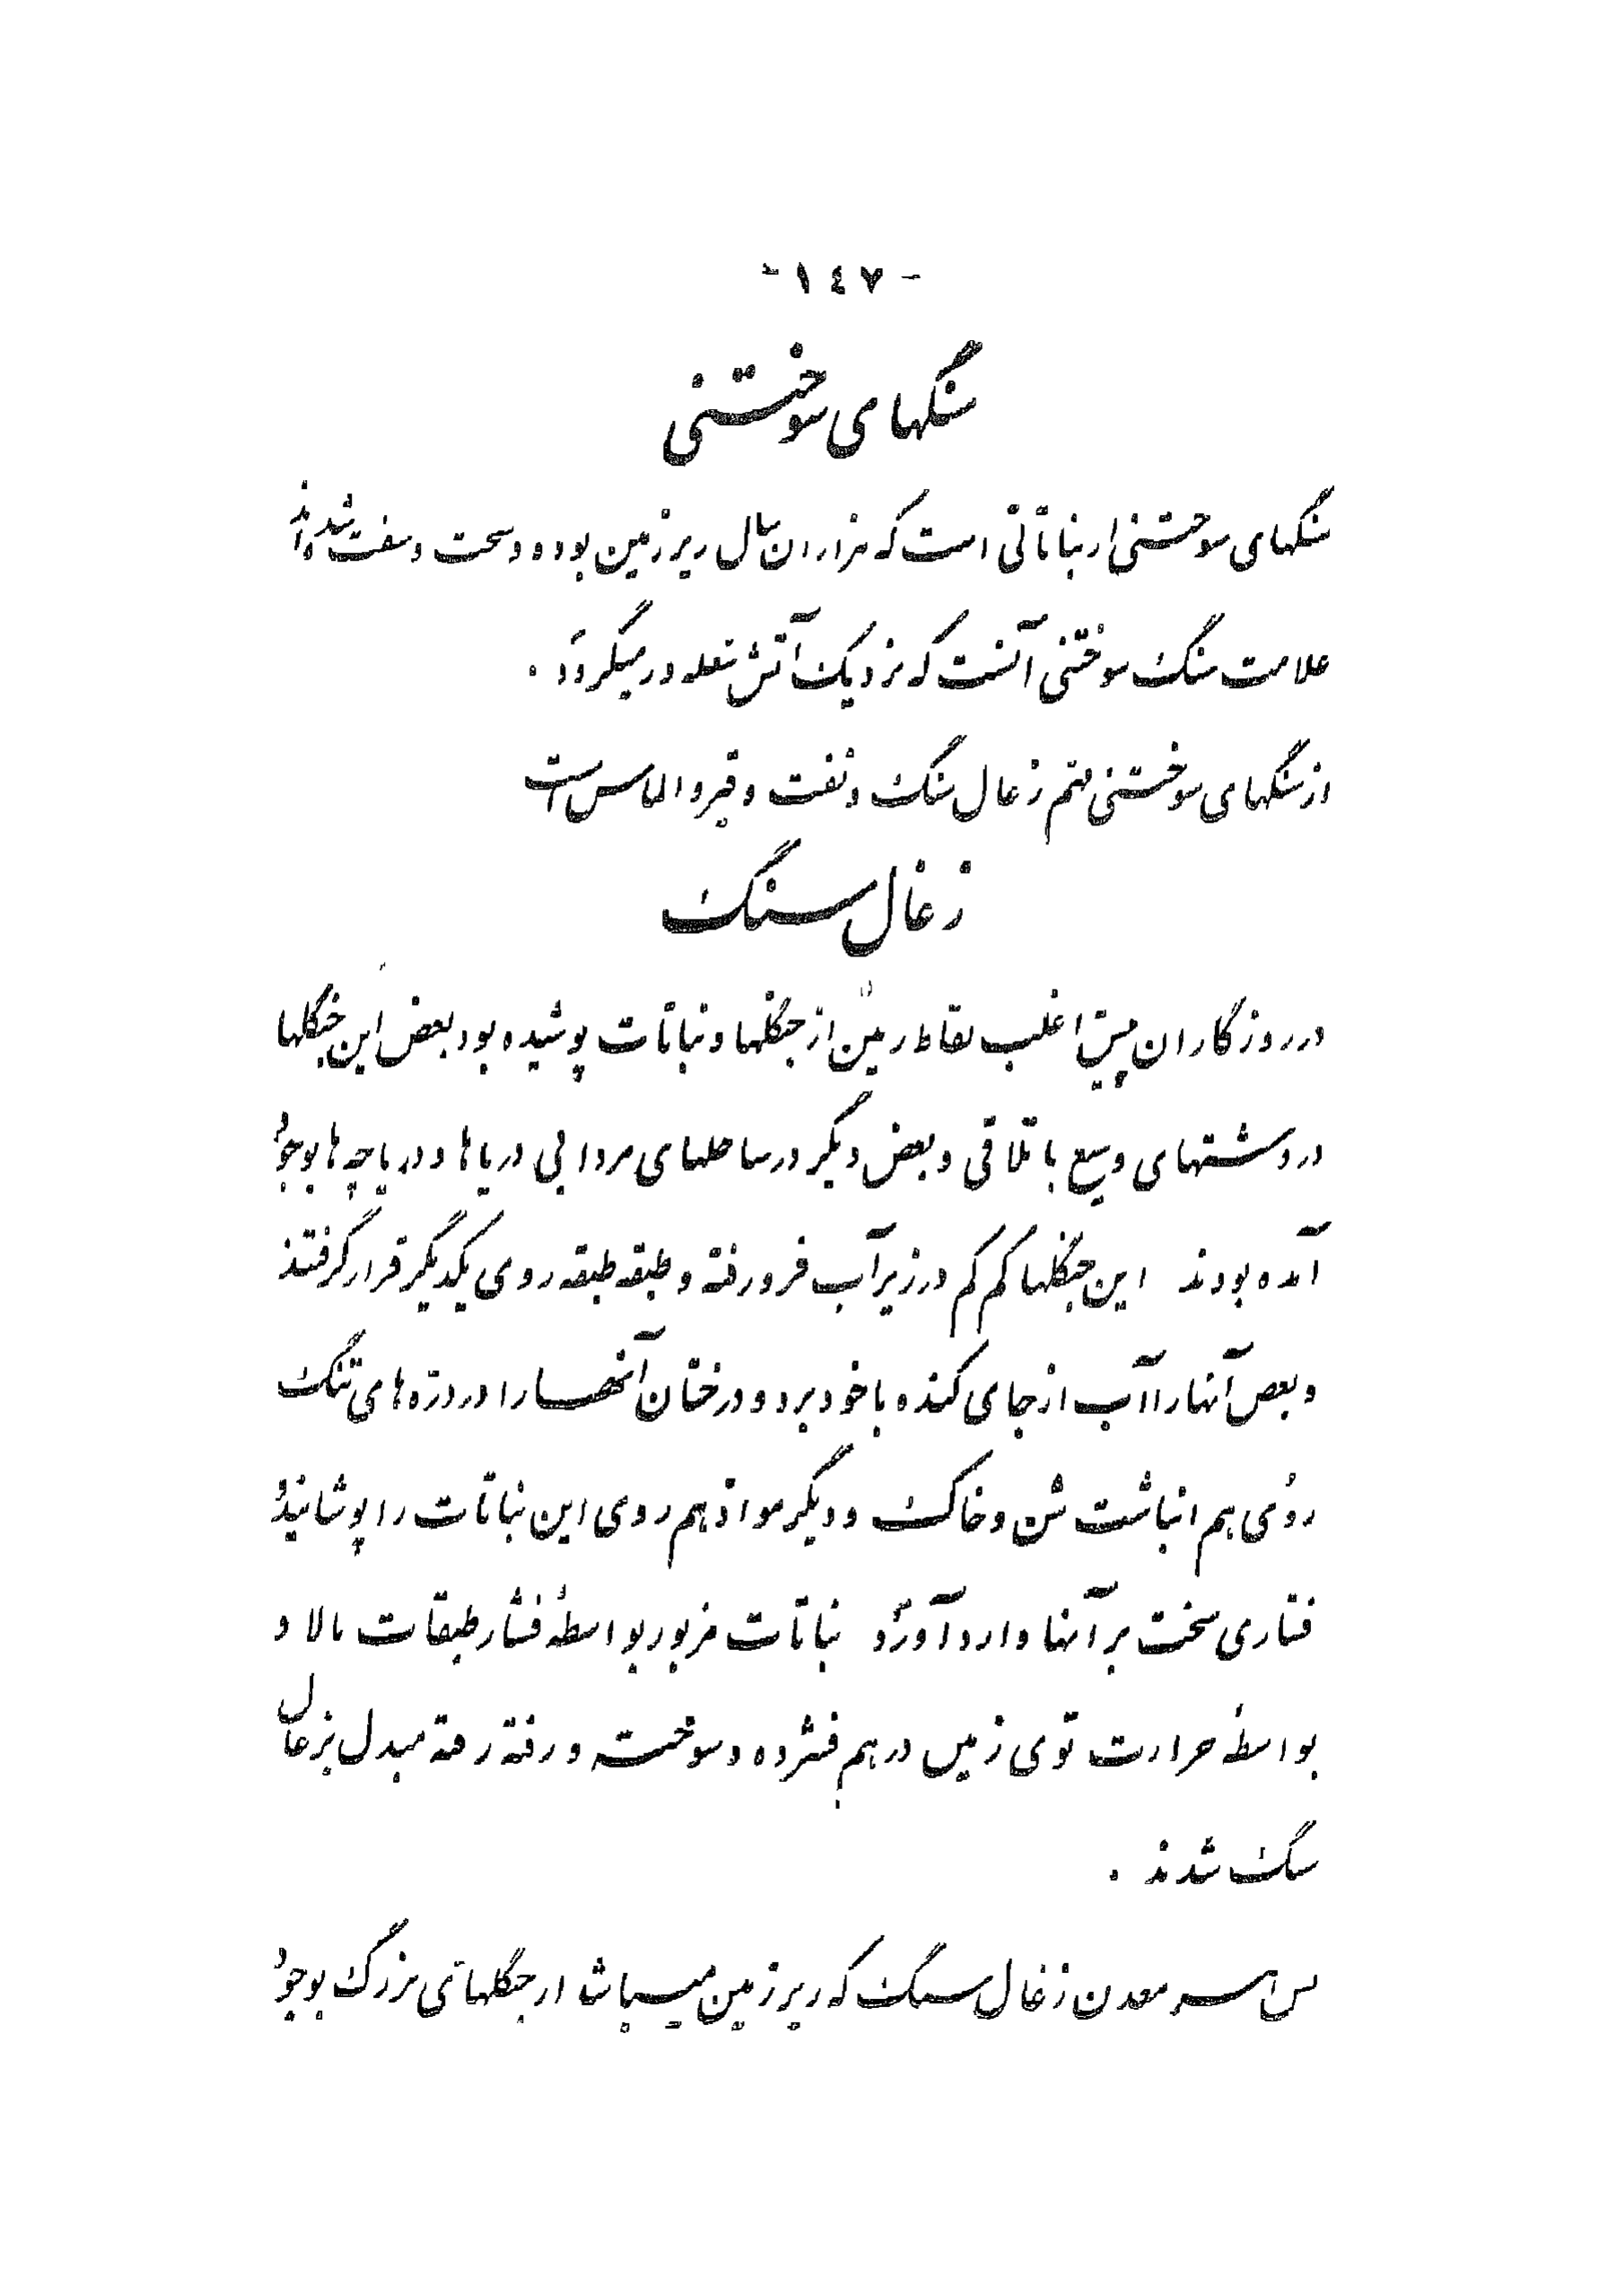 - ١٤٧ -
سنگهای سوختنی
سنگهای سوختنی از نباتاتی است که هزاران سال زیر زمین بوده و سخت و سفت شده‌اند
علامت سنگ سوختنی آنست که نزدیک آتش شعله در میگیرد .
از سنگهای سوختنی مهم زغال سنگ و نفت و قیر و الماس است
زغال سنگ
در روزگاران پیش اغلب نقاط زمین از جنگلها و نباتات پوشیده بود بعض این جنگلها
در دشتهای وسیع باتلاقی و بعض دیگر در ساحلهای مردابی دریاها و دریاچه ها بوجود
آمده بودند این جنگلها کم کم در زیر آب فرو رفته و طبقه طبقه روی یکدیگر قرار گرفتند
و بعض آنها را آب از جای کنده با خود برد و درختان آنها را در دره های تنگ
روی هم انباشت شن و خاک و دیگر مواد هم روی این نباتات را پوشانیده
فشاری سخت بر آنها وارد آورد نباتات مزبور بواسطهٔ فشار طبقات بالا و
بواسطهٔ حرارت توی زمین درهم فشرده و سوخته و رفته رفته مبدل بزغال
سنگ شدند .
پس معدن زغال سنگ که زیر زمین میباشد از جنگلهای بزرگ بوجود